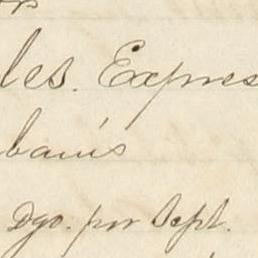 les. Expres
banis
Dgo. por Sept.